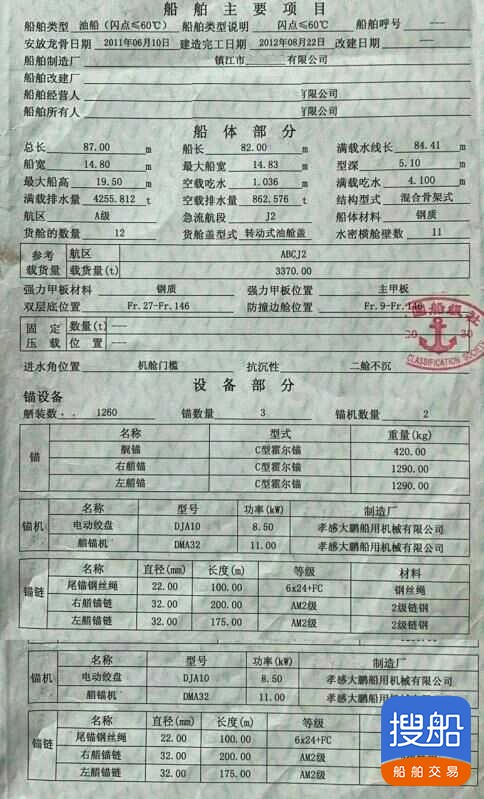 船舶主要项目
船舶类型 油船（闪点≤60℃） 船舶类型说明 闪点≤60℃ 船舶呼号 ---
安放龙骨日期 2011年06月10日 建造完工日期 2012年08月22日 改建日期 ---
船舶制造厂 镇江市 有限公司
船舶改建厂
船舶经营人 有限公司
船舶所有人 有限公司
船体部分
总长 87.00 m 船长 82.00 m 满载水线长 84.41 m
船宽 14.80 m 最大船宽 14.83 m 型深 5.10 m
最大船高 19.50 m 空载吃水 1.036 m 满载吃水 4.100 m
满载排水量 4255.812 t 空载排水量 862.576 t 结构型式 混合骨架式
航区 A级 急流航段 J2 船体材料 钢质
货舱的数量 12 货舱盖型式 转动式油舱盖 水密横舱壁数 11
参考 航区 ABCJ2
载货量 载货量(t) 3370.00
强力甲板材料 钢质 强力甲板位置 主甲板
双层底位置 Fr.27-Fr.146 防撞边舱位置 Fr.9-Fr.146
固定 数量(t) ---
压载 位置 ---
进水角位置 机舱门槛 抗沉性 二舱不沉
船级社
CLASSIFICATION SOCIETY
设备部分
锚设备
舾装数 1260 锚数量 3 锚机数量 2
锚 名称 型式 重量(kg)
艉锚 C型霍尔锚 420.00
右艏锚 C型霍尔锚 1290.00
左艏锚 C型霍尔锚 1290.00
锚机 名称 型号 功率(kW) 制造厂
电动绞盘 DJA10 8.50 孝感大鹏船用机械有限公司
艏锚机 DMA32 11.00 孝感大鹏船用机械有限公司
锚链 名称 直径(mm) 长度(m) 等级 材料
尾锚钢丝绳 22.00 100.00 6x24+FC 钢丝绳
右艏锚链 32.00 200.00 AM2级 2级链钢
左艏锚链 32.00 175.00 AM2级 2级链钢
锚机 名称 型号 功率(kW) 制造厂
电动绞盘 DJA10 8.50 孝感大鹏船用机械有限公司
艏锚机 DMA32 11.00 孝感大鹏船用机械有限公司
锚链 名称 直径(mm) 长度(m) 等级
尾锚钢丝绳 22.00 100.00 6x24+FC
右艏锚链 32.00 200.00 AM2级
左艏锚链 32.00 175.00 AM2级
搜船
船舶交易